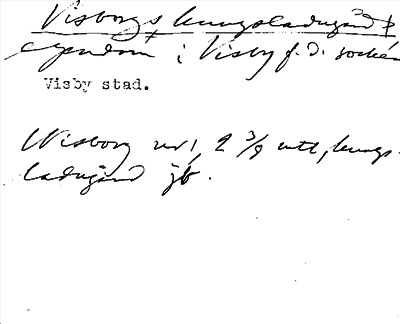 Visborgs kungsladugård
egendom i Visby f.d. socken
Visby stad.
Wisborg nr 1, 2 3/9 mtl, kungs-
ladugård jb.